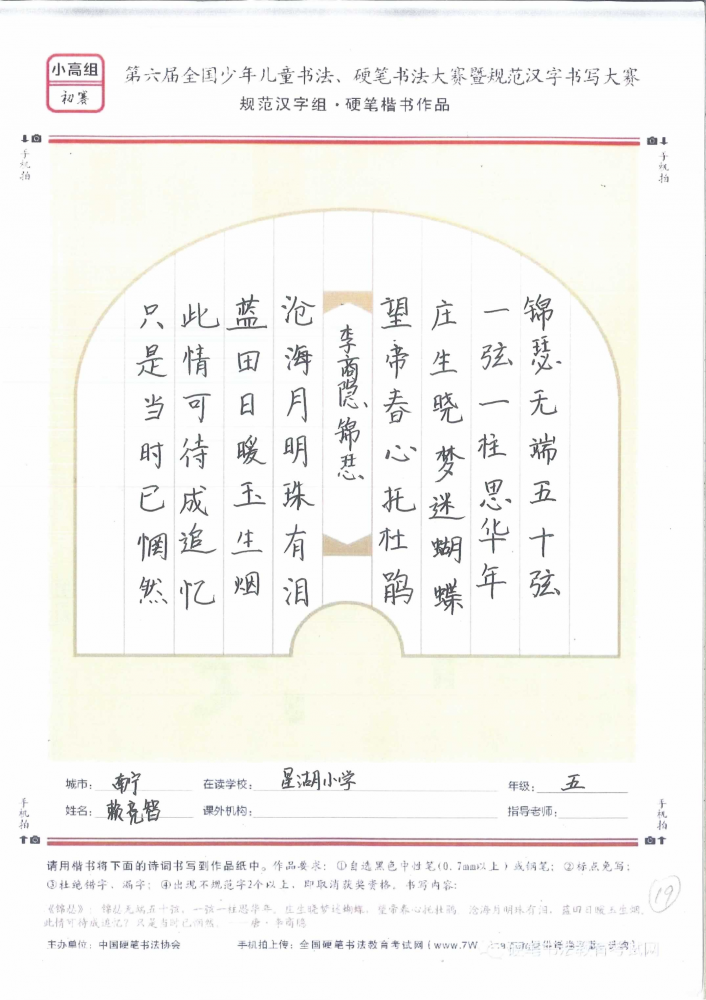 小高组
初赛
第六届全国少年儿童书法、硬笔书法大赛暨规范汉字书写大赛
规范汉字组·硬笔楷书作品
手机拍
手机拍
锦瑟无端五十弦
一弦一柱思华年
庄生晓梦迷蝴蝶
望帝春心托杜鹃
李商隐锦瑟
沧海月明珠有泪
蓝田日暖玉生烟
此情可待成追忆
只是当时已惘然
城市：南宁 在读学校：星湖小学 年级：五
姓名：赖亮智 课外机构： 指导老师：
手机拍
手机拍
请用楷书将下面的诗词书写到作品纸中。作品要求：①自选黑色中性笔(0.7mm以上)或钢笔；②标点免写；
③杜绝错字、漏字；④出现不规范字2个以上，即取消获奖资格。书写内容：
《锦瑟》：锦瑟无端五十弦，一弦一柱思华年。庄生晓梦迷蝴蝶，望帝春心托杜鹃。沧海月明珠有泪，蓝田日暖玉生烟。
此情可待成追忆？只是当时已惘然。——唐·李商隐
19
主办单位：中国硬笔书法协会 手机拍上传：全国硬笔书法教育考试网(www.7W
硬笔书法教育考试网